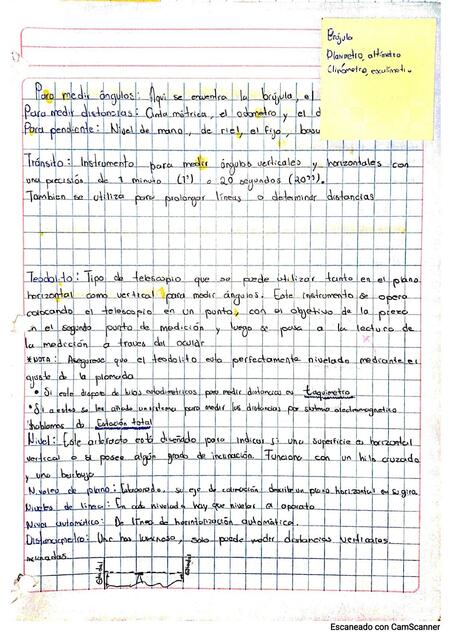 Brújula
Planímetro, altímetro
Clinómetro,
Para medir ángulos: Aquí se encuentra la brújula, el
Para medir distancias: Cinta métrica, el odómetro y el d
Para pendiente: Nivel de mano, de riel, el fijo, basu
Tránsito: Instrumento para medir ángulos verticales y horizontales con
una precisión de 1 minuto (1') o 20 segundos (20'').
Tambien se utiliza para prolongar líneas o determinar distancias
Teodolito: Tipo de telescopio que se puede utilizar tanto en el plano
horizontal como vertical para medir ángulos. Este instrumento se opera
colocando el telescopio en un punto, con el objetivo de la
en el segundo punto de medición y luego se pasa a la lectura de
la medicción a traves del ocular
*NOTA: Asegurese que el teodolito esta perfectamente nivelado mediante el
ajuste de la plomada
• Si este dispone de hilos estadimetricos para medir distancias es Taquimetro
• Si a estos se les añade un sistema para medir las distancias por sistema electromagnetico
hablamos de Estación total
Nivel: Este artefacto está diseñado para indicar si una superficie es horizontal
vertical o si posee algún grado de inclinación. Funciona con un hilo cruzado
y una burbuja
Niveles de plano: Elaborado, su eje de describe un plano horizontal en su giro.
Niveles de línea: En cada nivelada hay que nivelar a aparato
Nivel automático: De línea de horizontalización automática.
Distanciometro: Une haz luminoso, solo puede medir distancias verticales
inclinadas
Escaneado con CamScanner